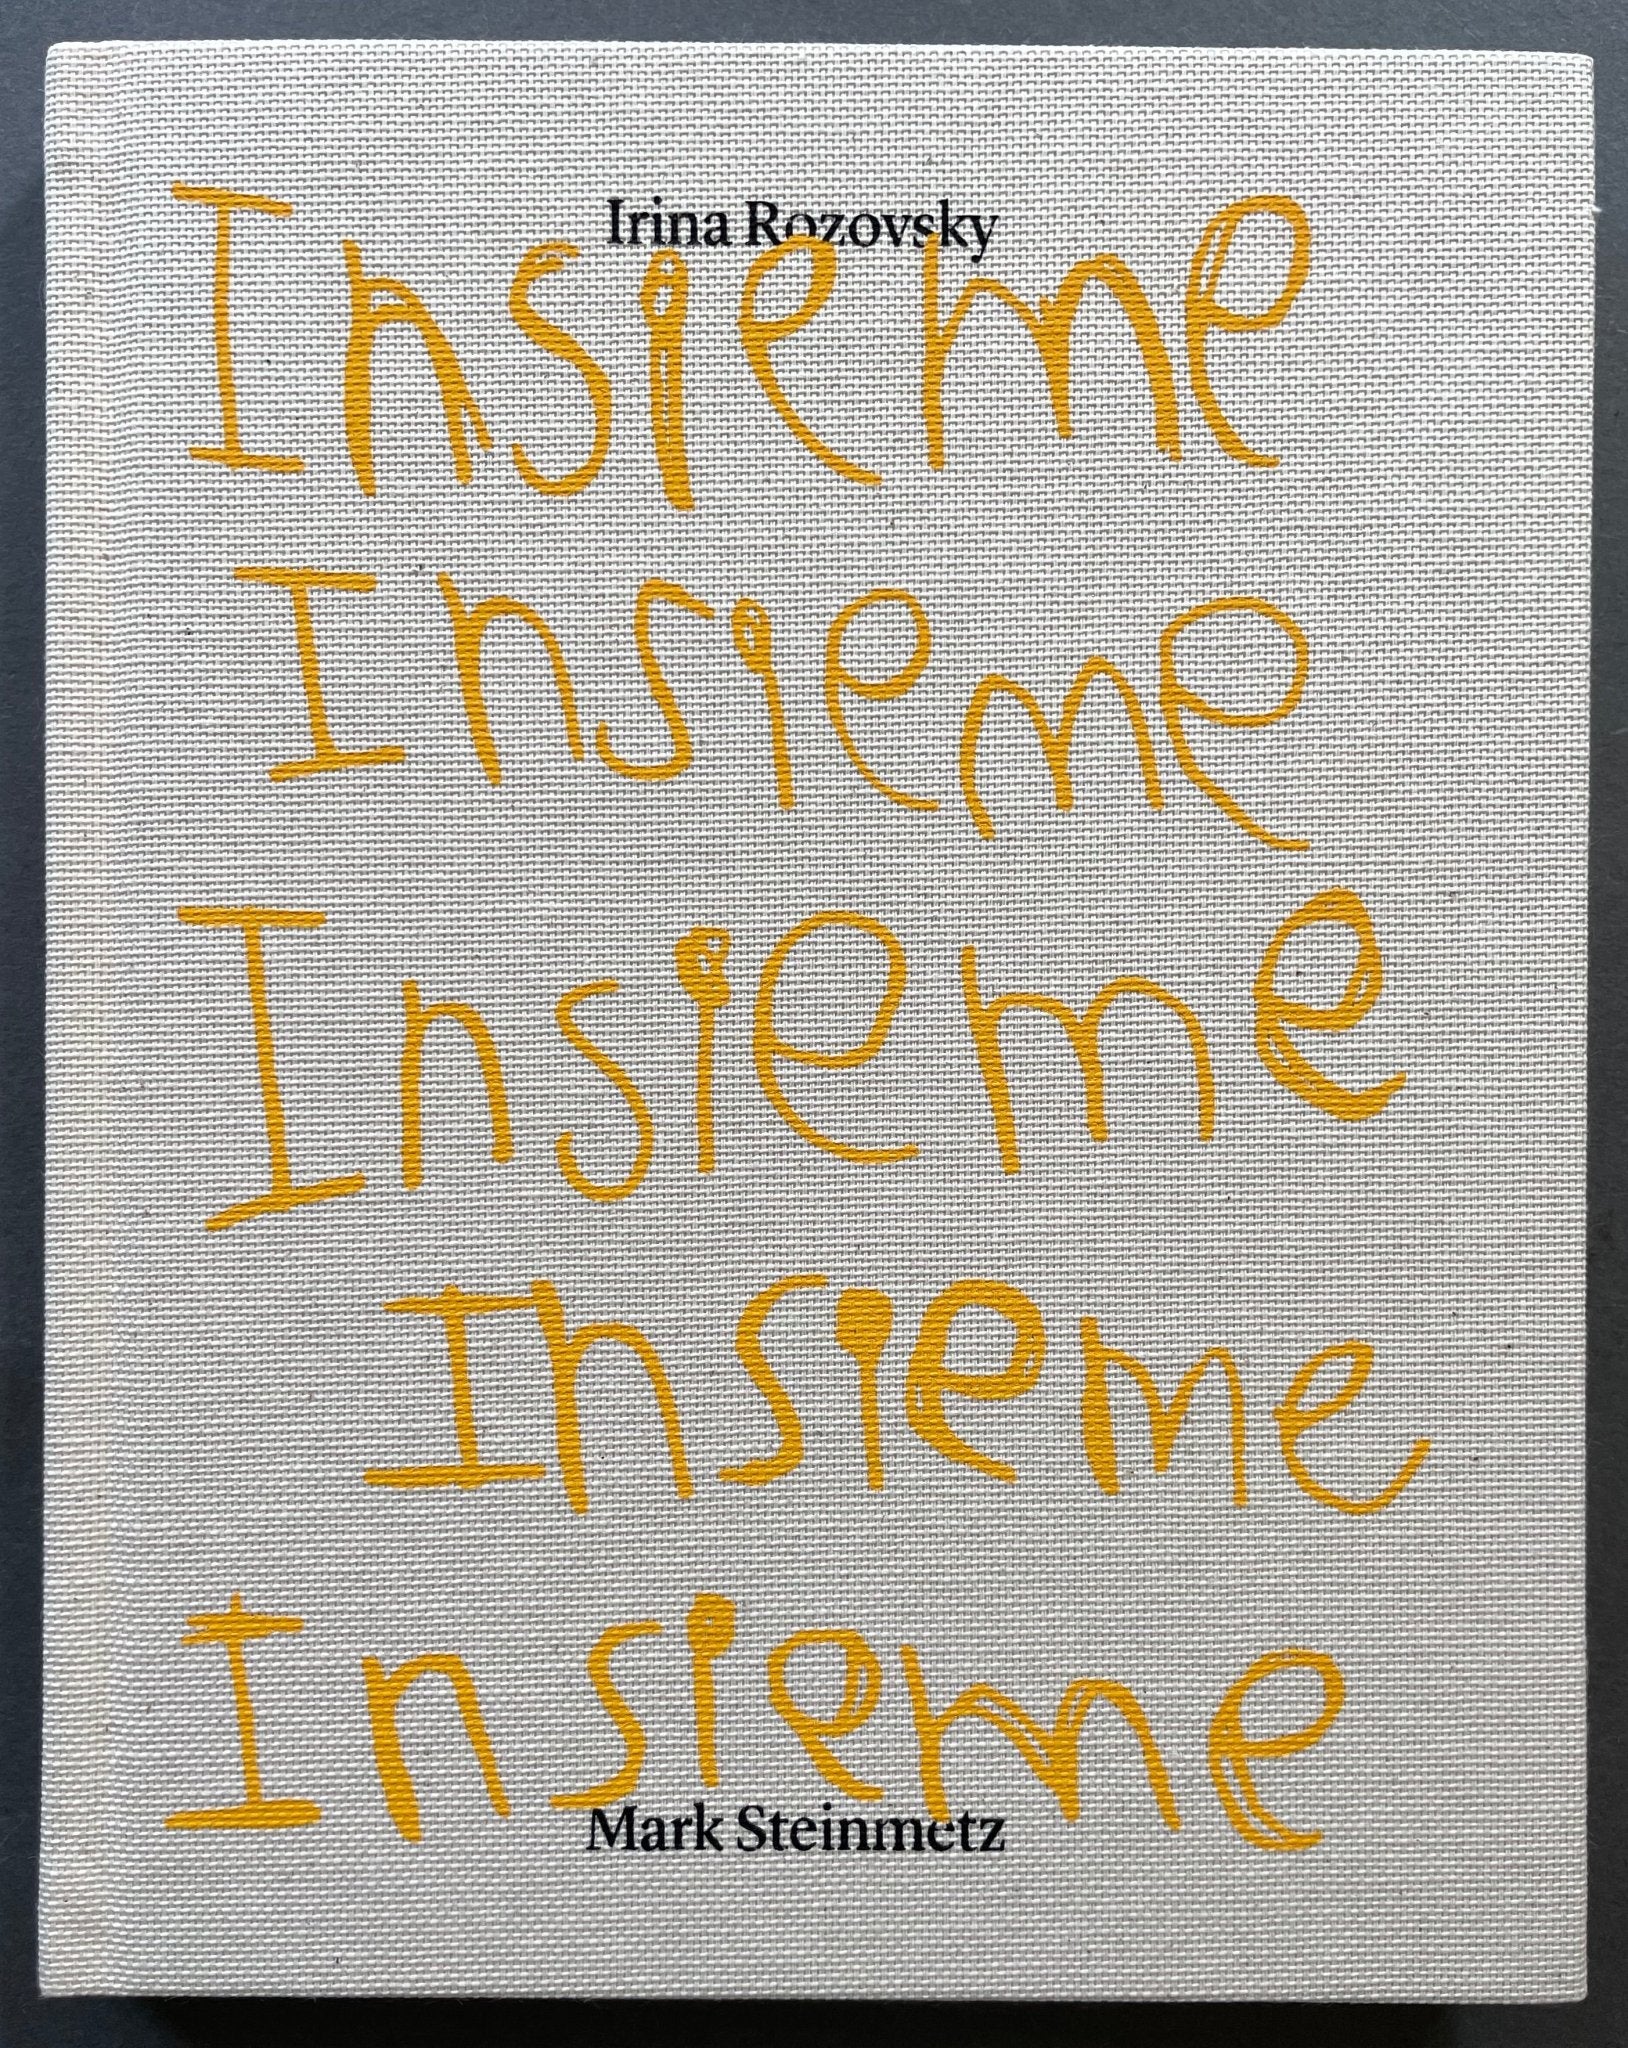 Irina Rozovsky
Insieme
Insieme
Insieme
Insieme
Insieme
Mark Steinmetz